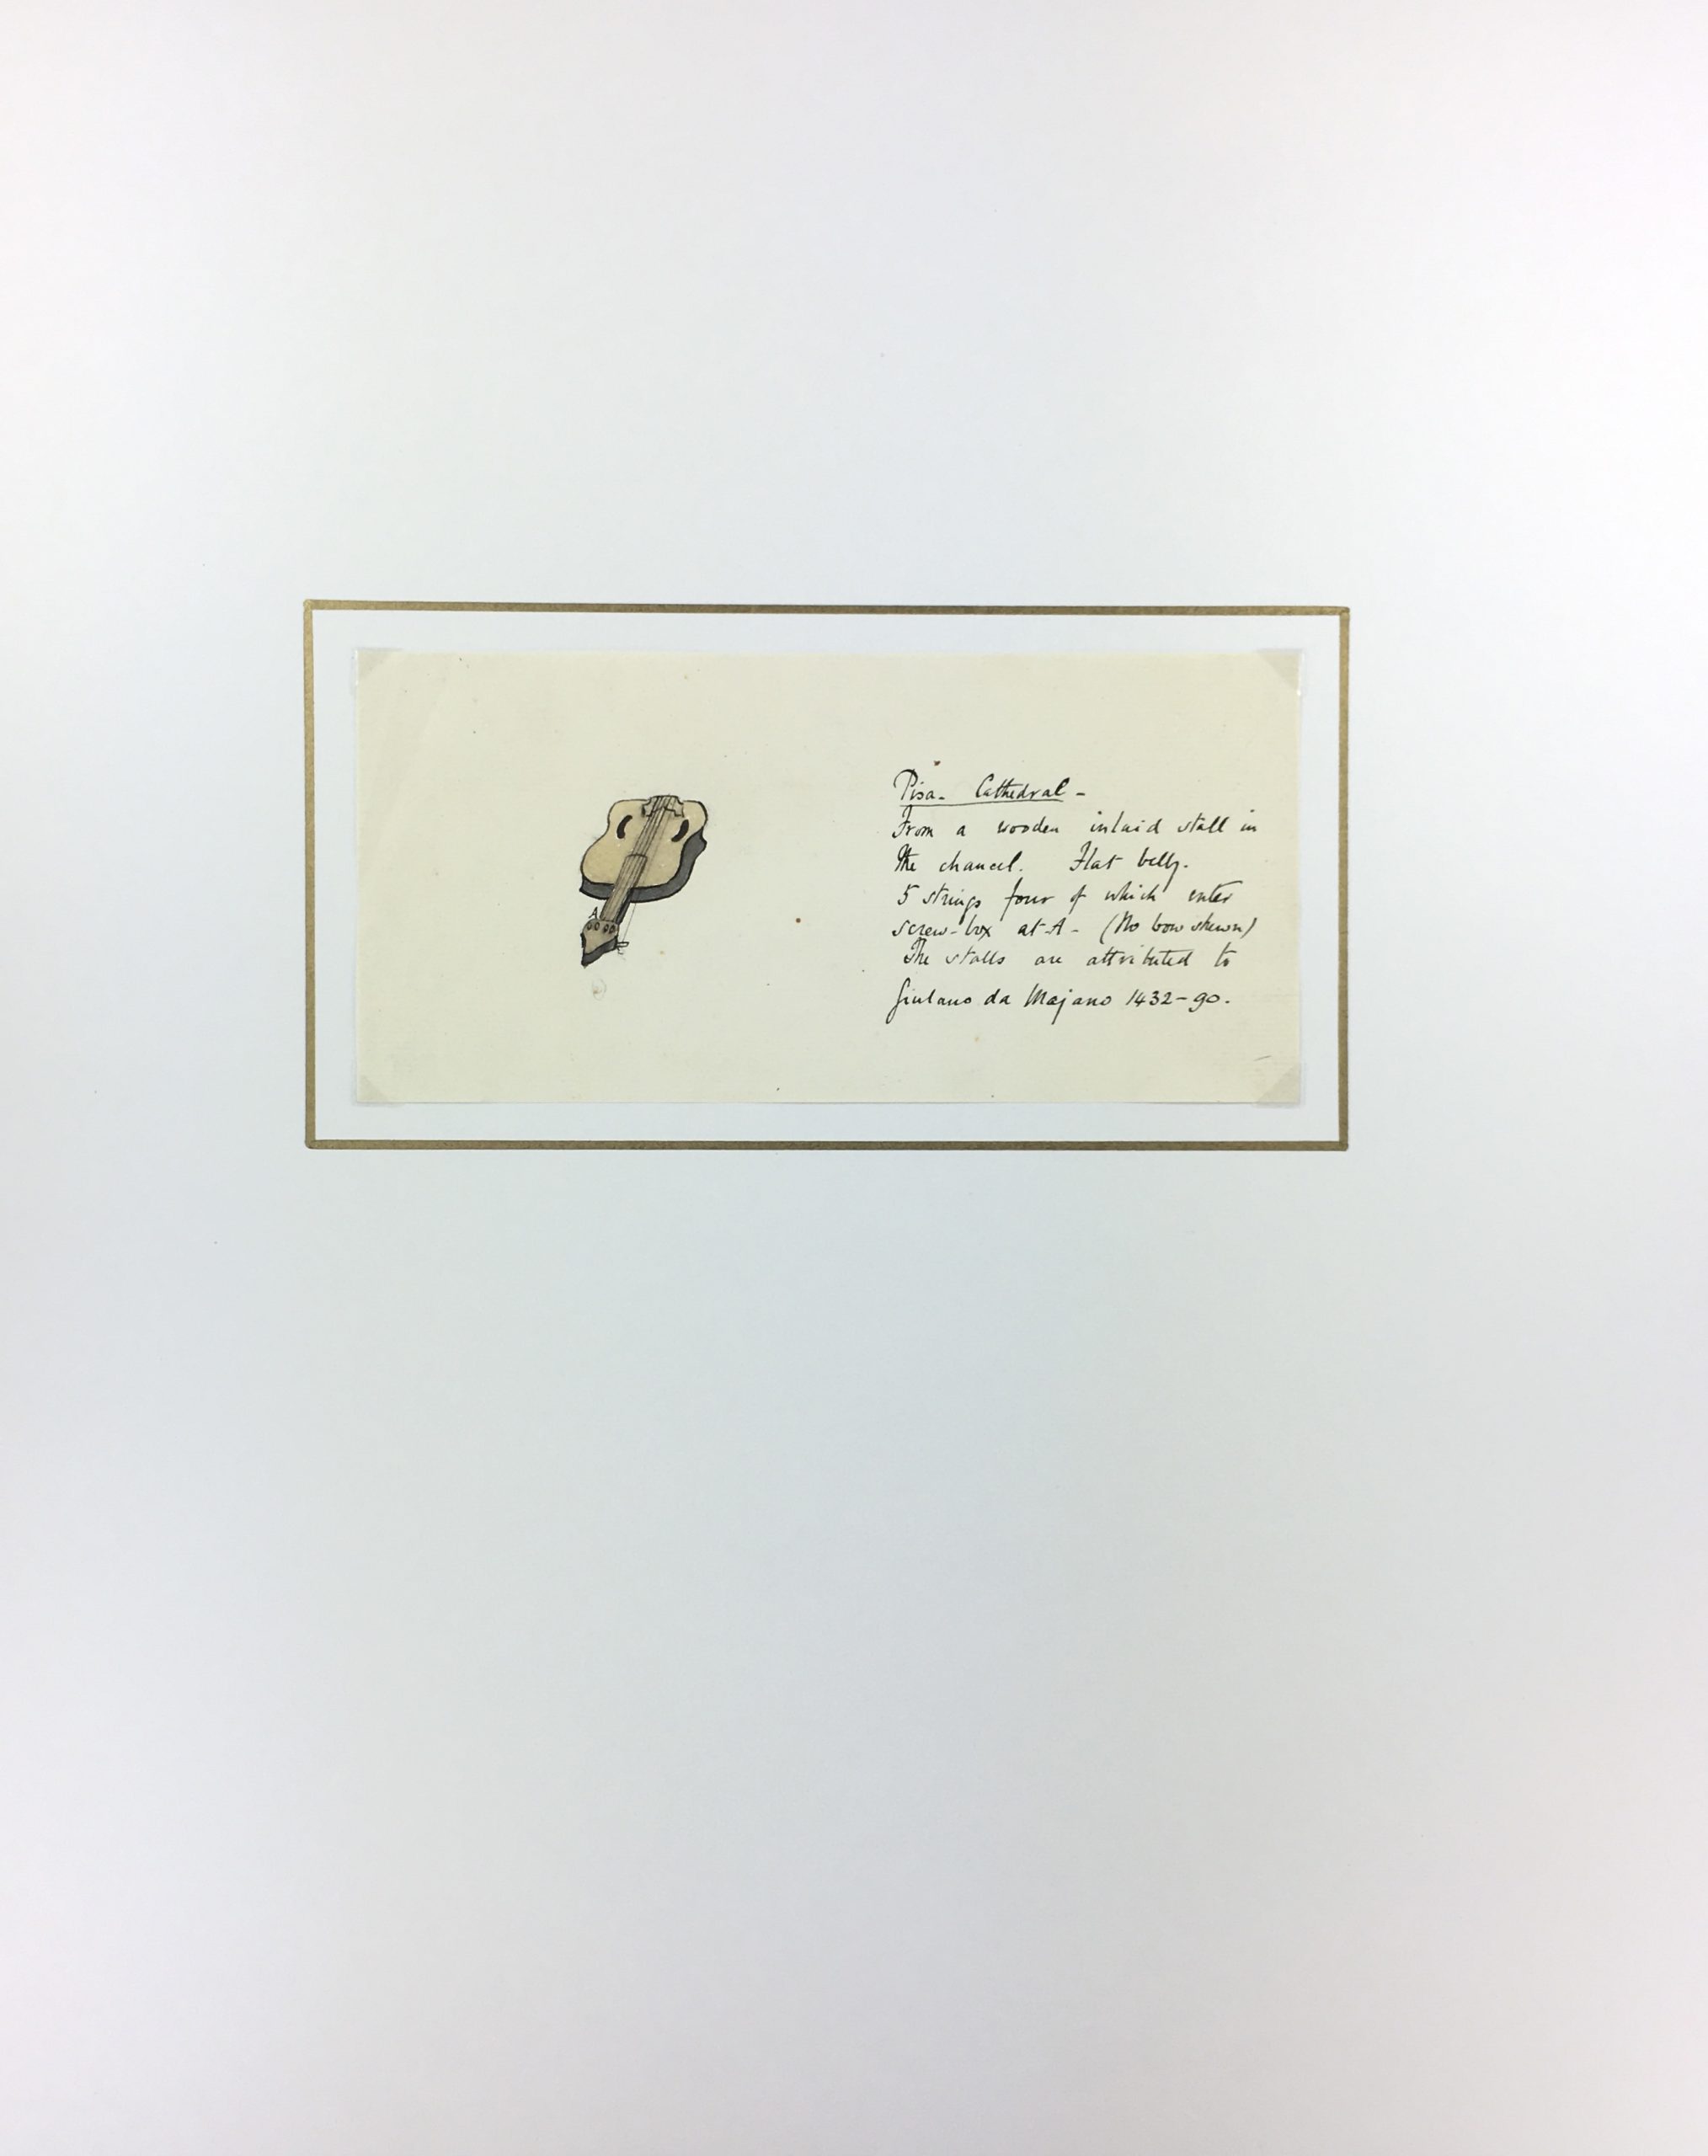 A
Pisa - Cathedral -
From a wooden inlaid stall in
the chancel. Flat belly.
5 strings four of which enter
screw-box at A - (No bow shewn)
The stalls are attributed to
Giulano da Majano 1432-90.